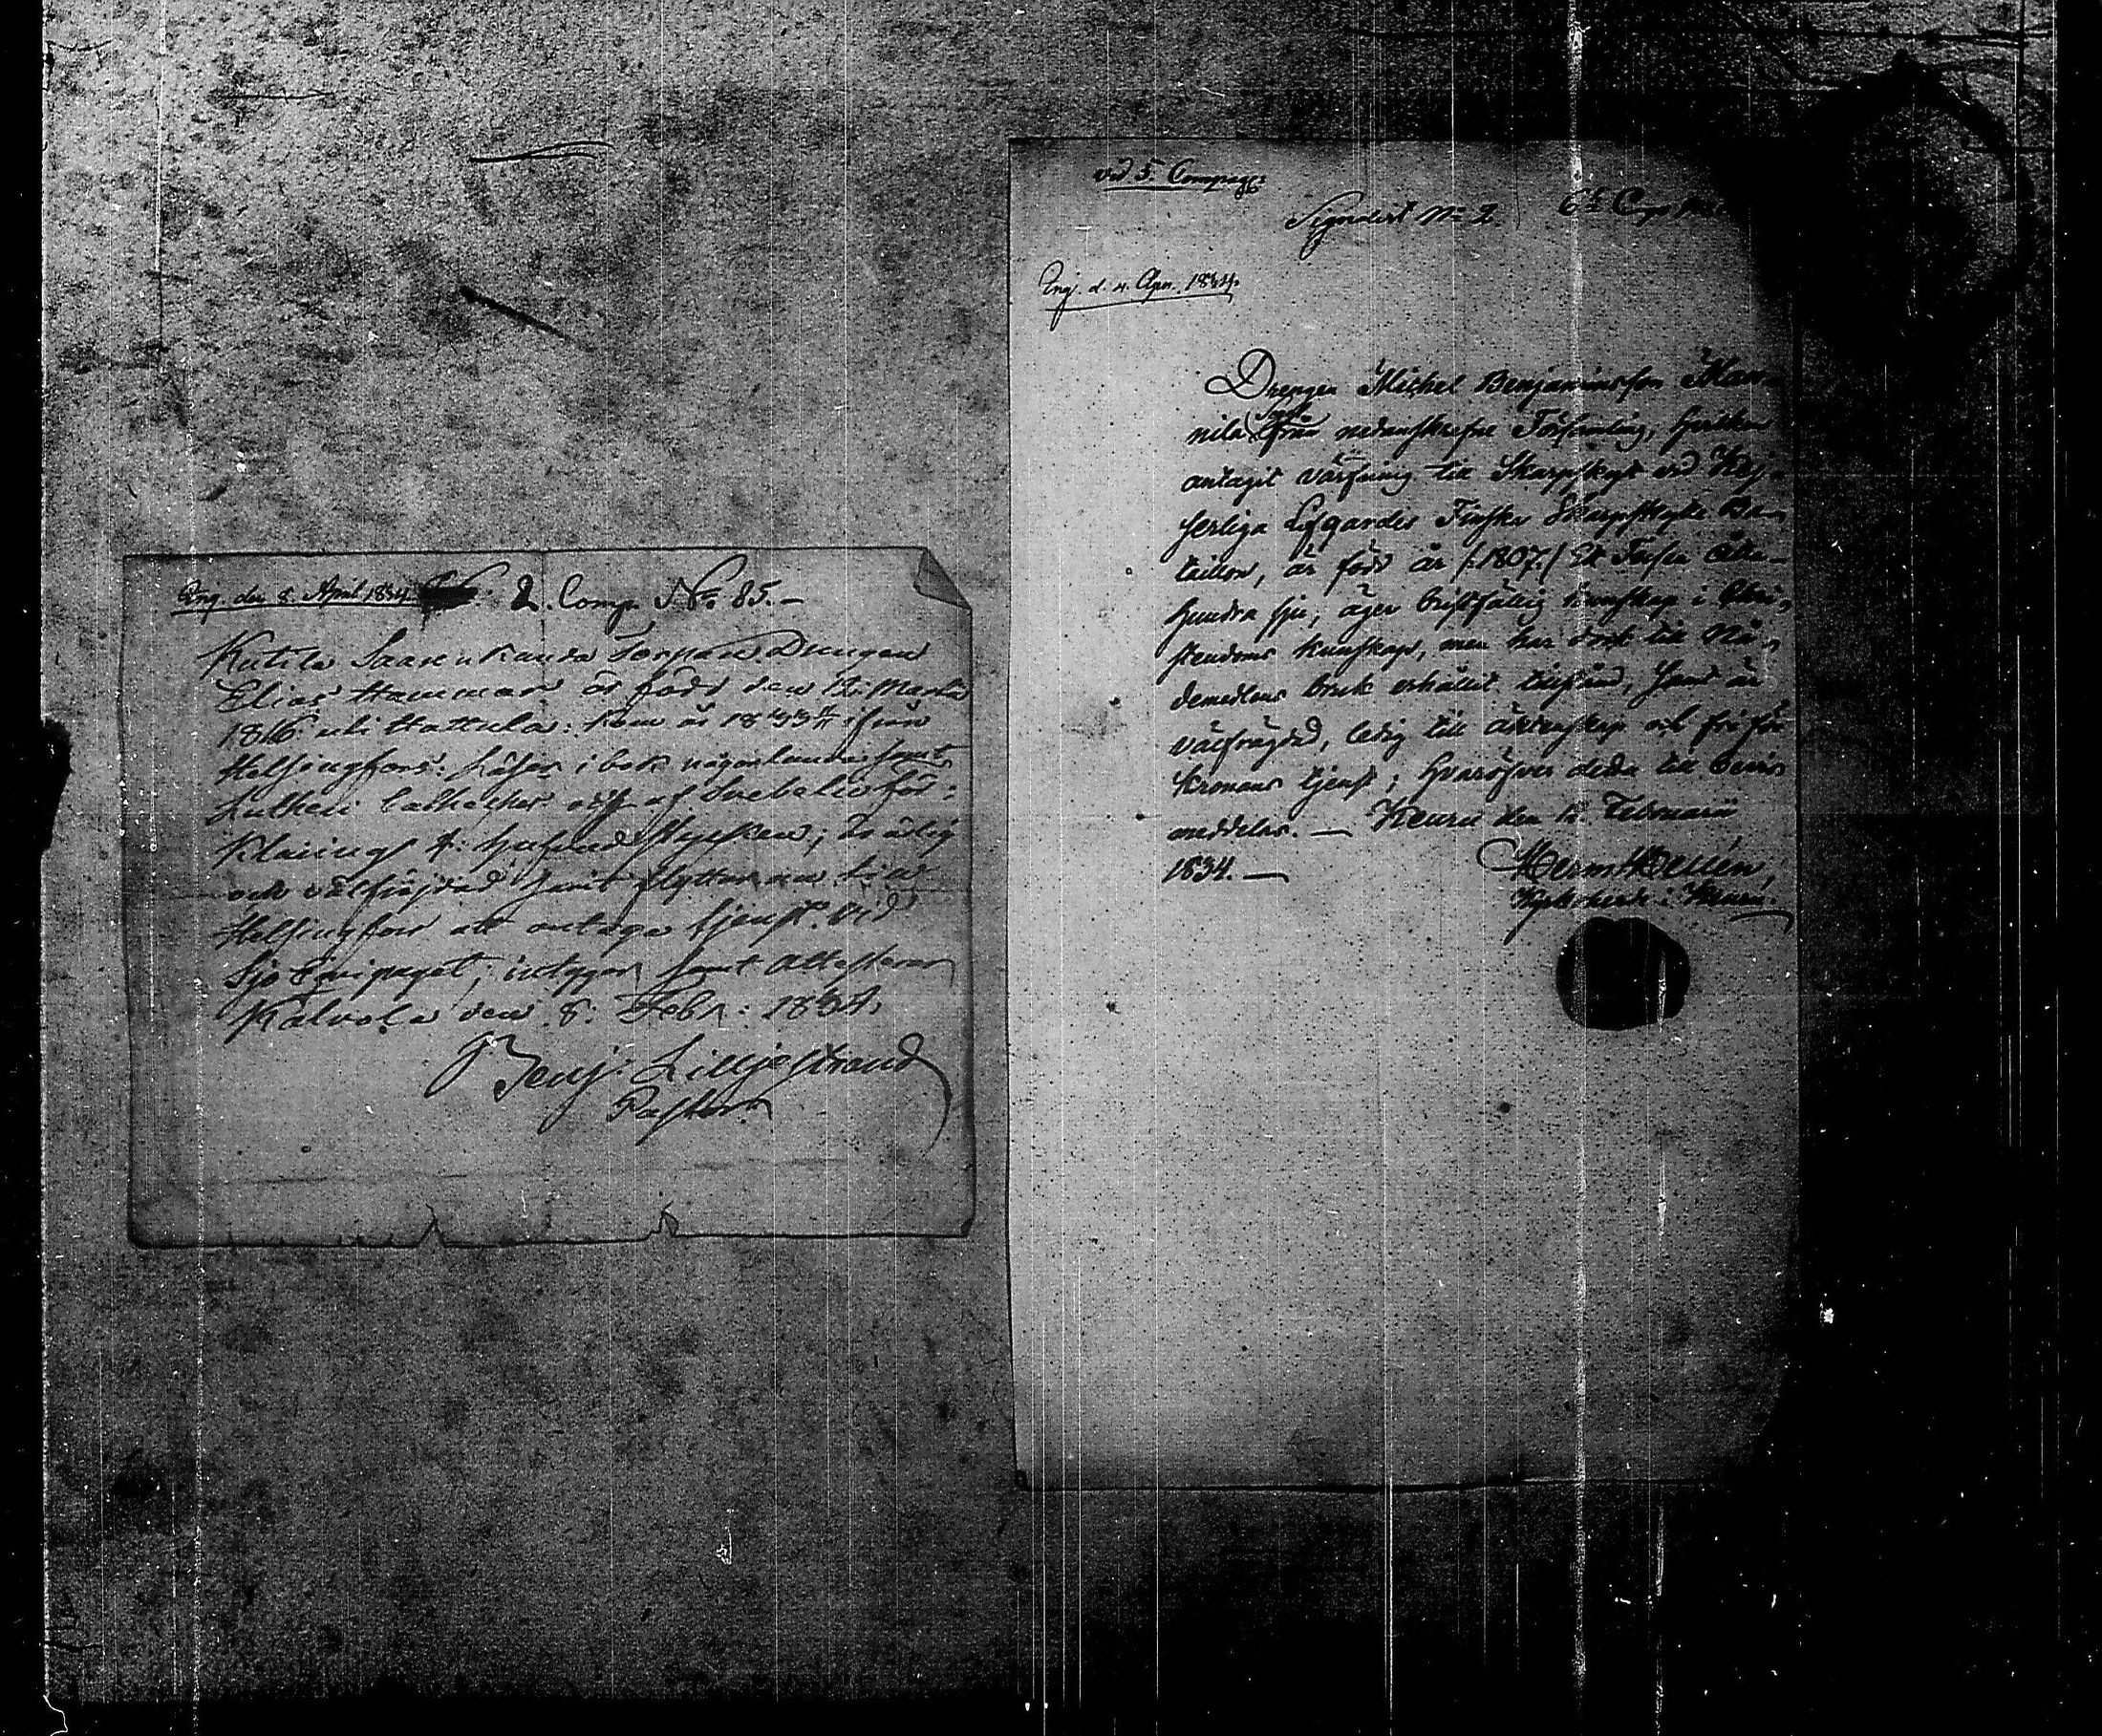 Ing. den 8. April 1834. 2. Comp. No. 85.—
Kutila Saarenkanda Torpare Drengen
Elias Hammar är född den 12: Martii
1816 uti Hattula: kom år 1833 ifrån
Helsingfors: Läser i bok någorlunda samt
Lutheri Catheches och af Svebelii för:
klaring Hufvudstycken; är ärlig
och välfrejdad hvarit flyttar nu till
Helsingfors att antaga tjenst vid
Sjö Equipaget; intygar samt Attesterar
Kalvola den 8: Febr: 1834.
Benj: Lilljestrand
Pastor
vid 5 Compag:
Signalist No 2 6te Comp
Ing. d. 4. Apr. 1834.
Drengen Michel Benjaminsson Man-
nila från nedanskrefne Församling, hvilken
antagit värfning till Skarpskytt vid Kej-
serliga Lifgardes Finska Skarpskytte Ba-
taillon, är född år /:1807:/ Ett Tusen Åtta-
hundra sju, äger bristfällig kunskap i Chri-
stendoms kunskap, men har dock till Nå-
demedlens bruk erhållit tillstånd, samt är
välfrägdad, ledig till äktenskap och fri för
Kronans tjenst; hvaröfver detta till bevis
meddelas. — Keuru den 12 Februarii
1834. —
Herm Hellén,
Kyrkoherde i Keuru.